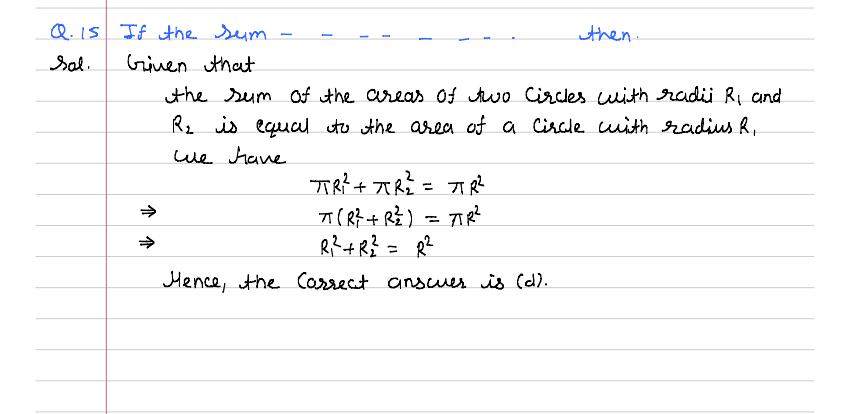 Q.15 If the sum - - - - - - - . then.
Sol. Given that
the sum of the areas of two Circles with radii R₁ and
R₂ is equal to the area of a Circle with radius R,
we have
πR₁² + πR₂² = πR²
⇒ π(R₁² + R₂²) = πR²
⇒ R₁² + R₂² = R²
Hence, the Correct answer is (d).